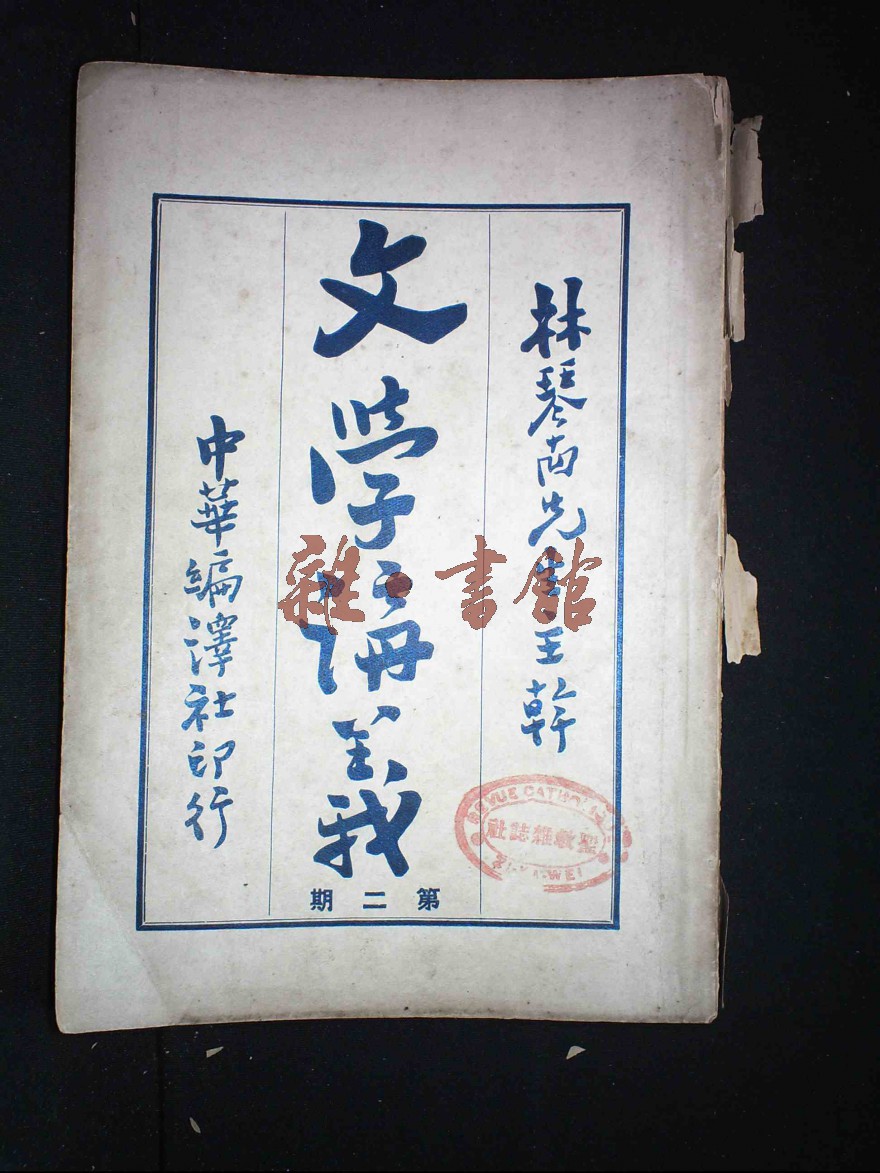 林琴南先生主幹
文學講義
第二期
中華編譯社印行
雜·書館
REVUE CATHOLI
聖教雜誌社